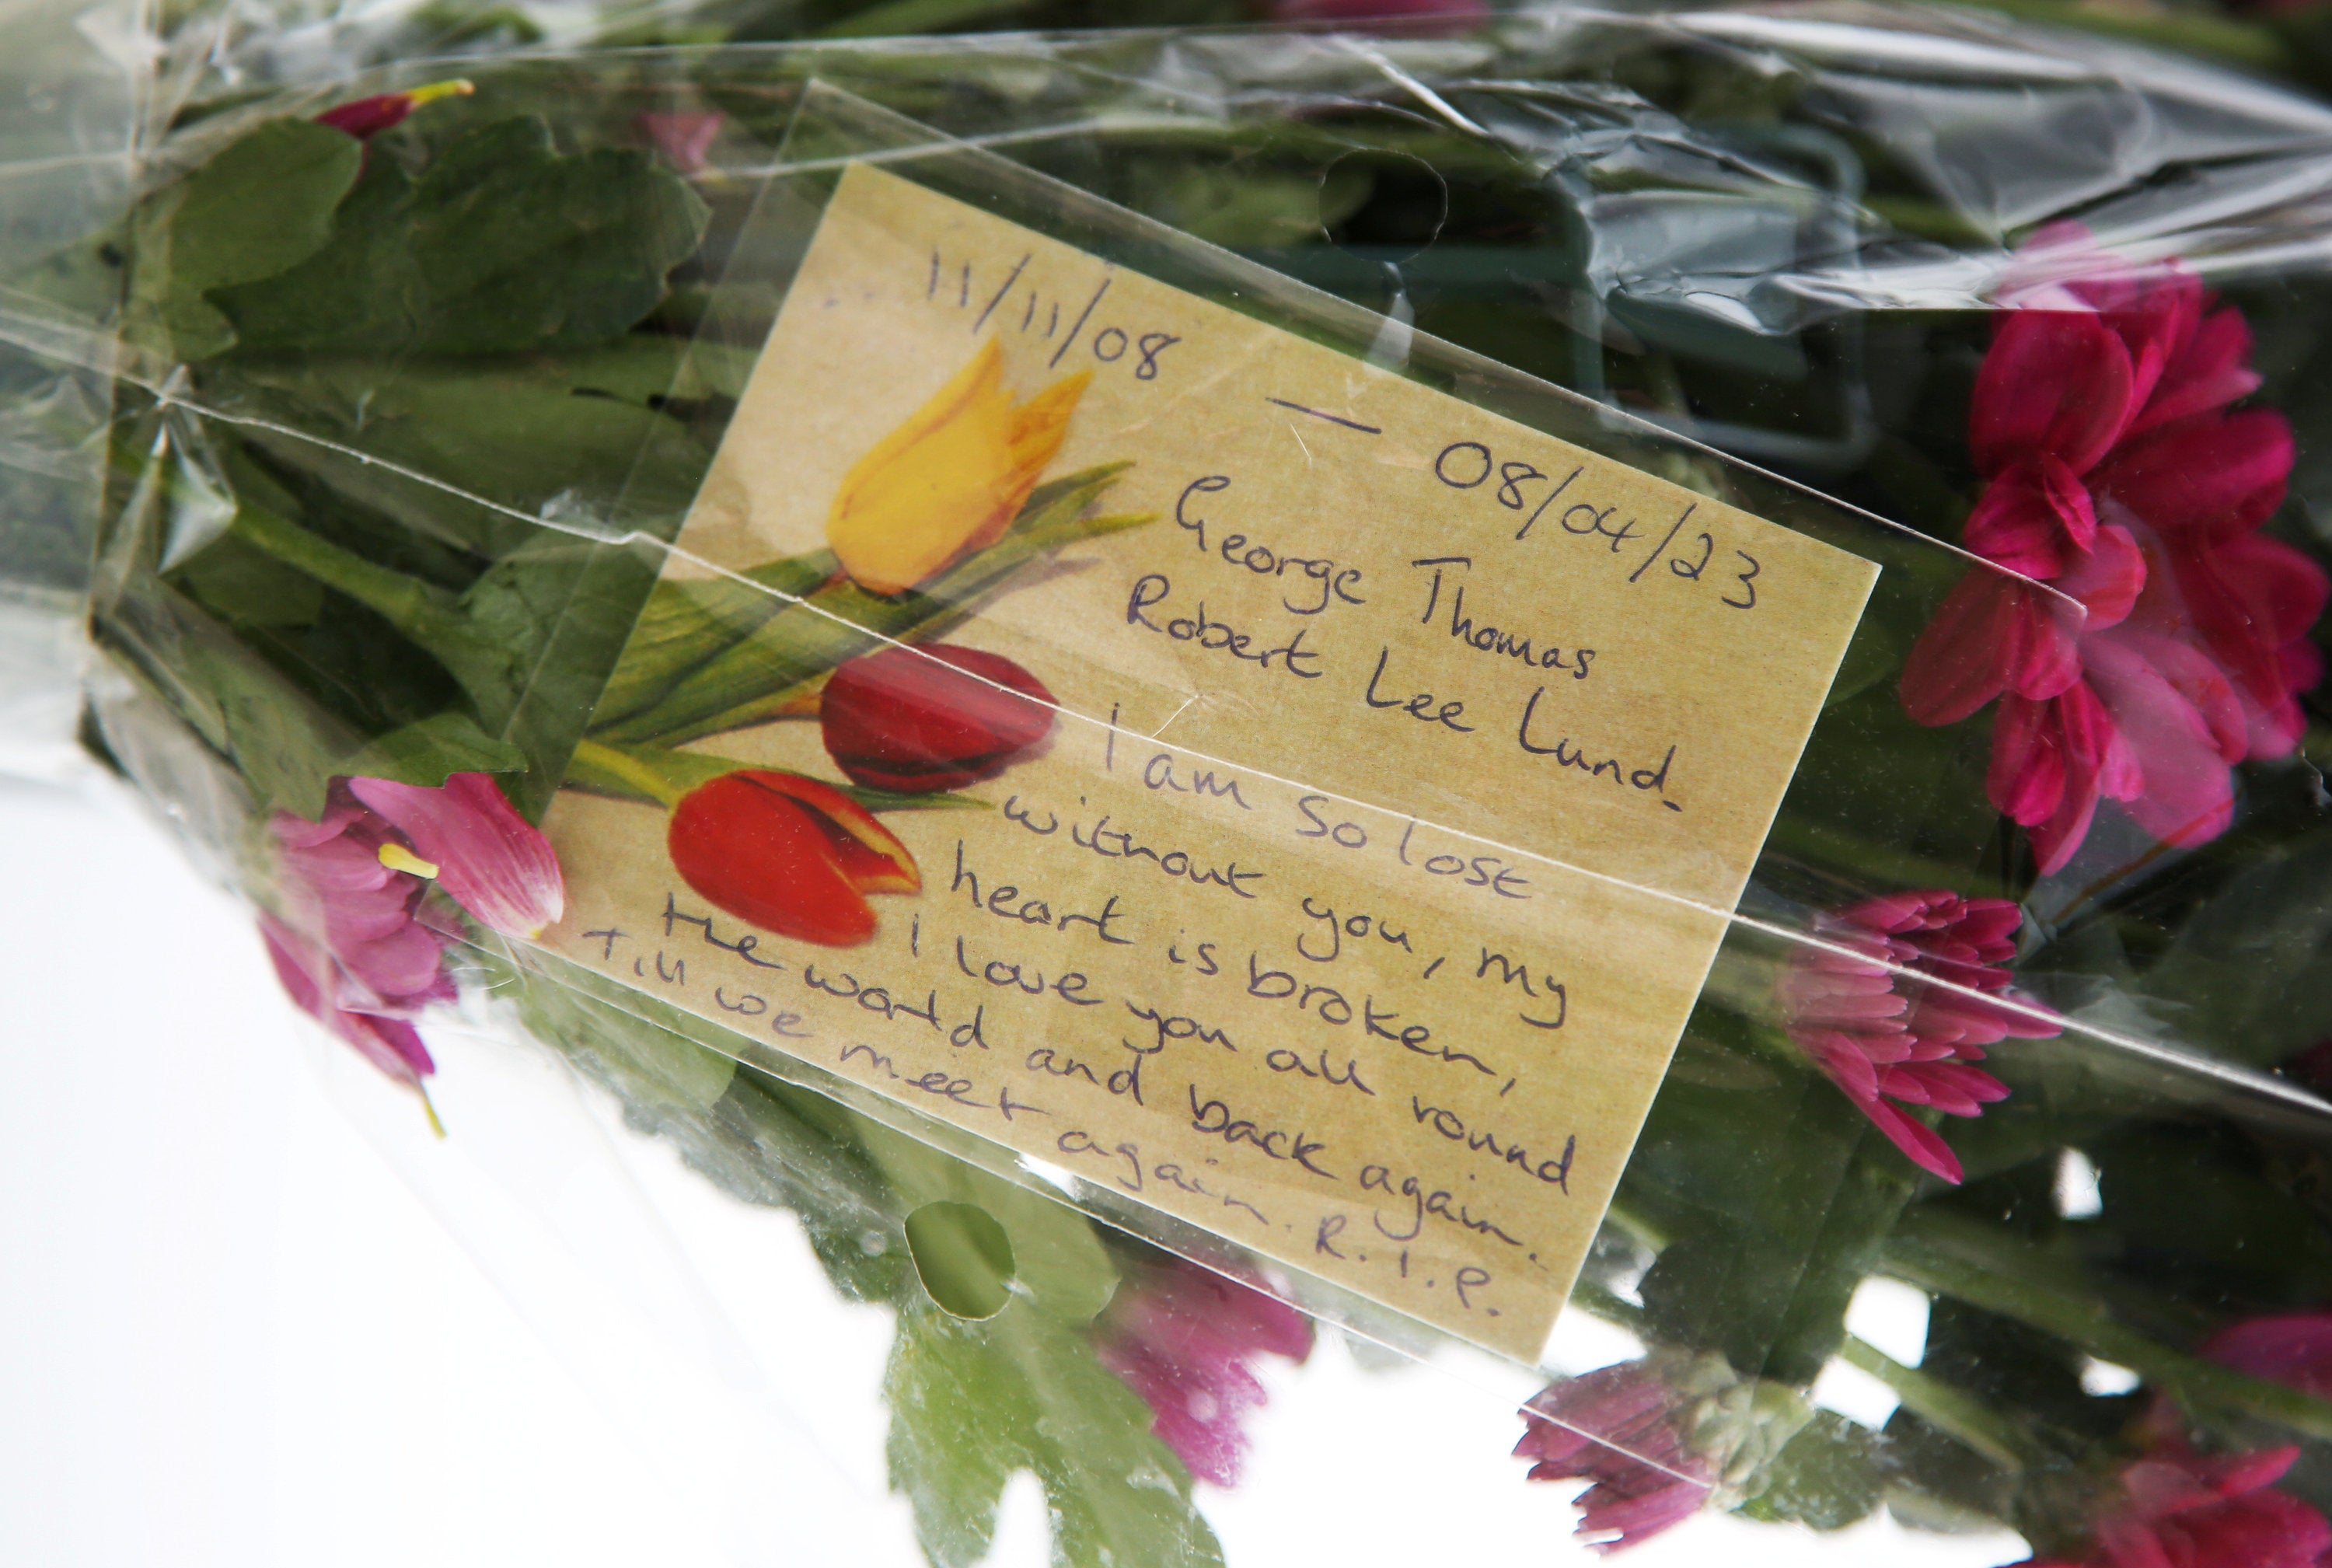 11/11/08 — 08/04/23
George Thomas
Robert Lee Lund.
I am so lost
without you, my
heart is broken,
I love you all round
the world and back again.
Till we meet again. R.I.P.